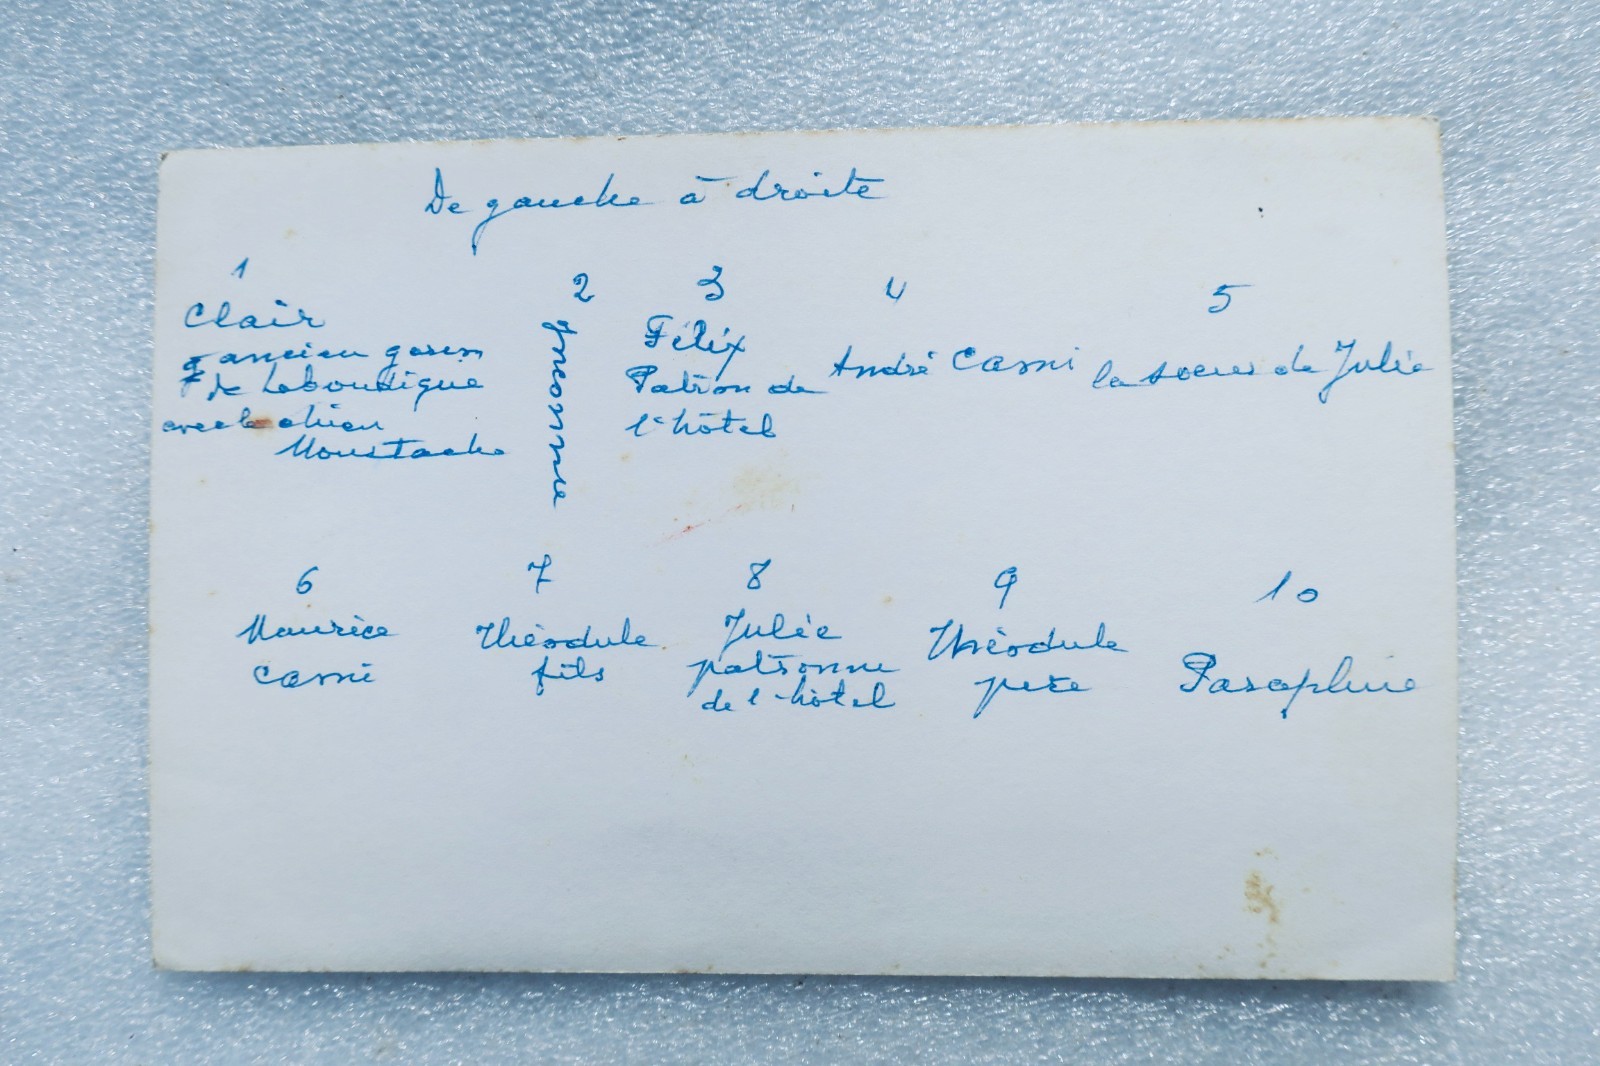 De gauche à droite
1 2 3 4 5
Clair
ancien
de
avec le chien
Moustache
Inconnue
Félix
Patron de
l'hôtel
André Casni
la soeur de Julie
6 7 8 9 10
Maurice
Casni
Théodule
fils
Julie
patronne
de l'hôtel
Théodule
père